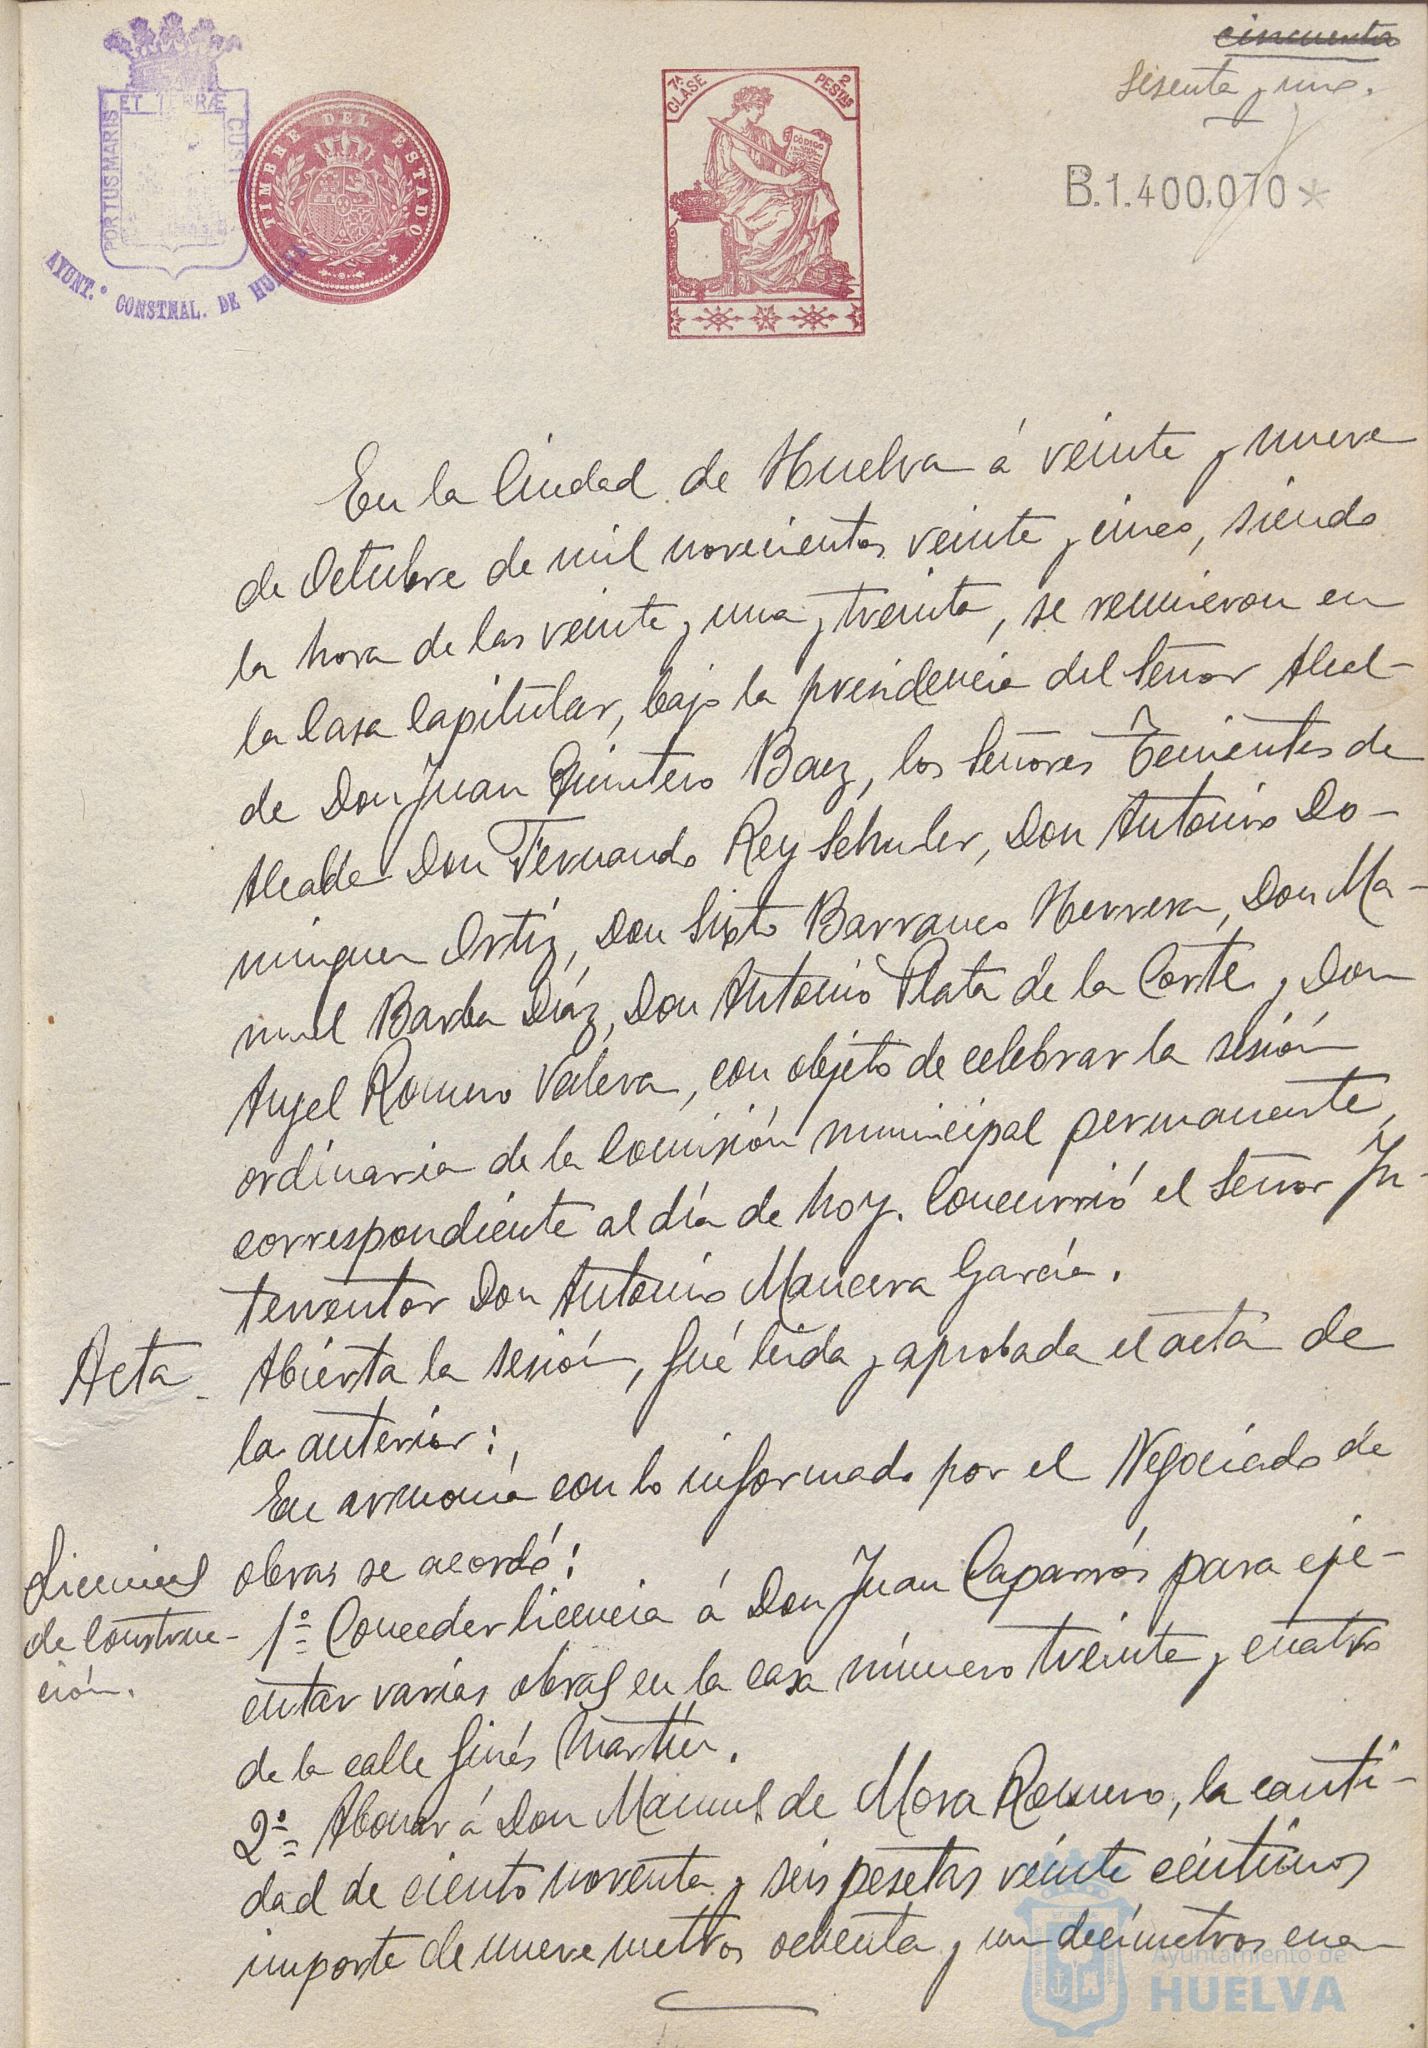 cincuenta
Sesenta y uno.
PORTUS MARIS ET TERRÆ CUST
AYUNT.º CONSTNAL. DE HUELVA
TIMBRE DEL ESTADO
7ª CLASE
2 PESTAS
CÓDIGO
B.1.400.070*
En la Ciudad de Huelva á veinte y nueve
de Octubre de mil novecientos veinte y cinco, siendo
la hora de las veinte y una y treinta, se reunieron en
la Casa Capitular, bajo la presidencia del Señor Alcal-
de Don Juan Quintero Baez, los Señores Tenientes de
Alcalde Don Fernando Rey Schuler, Don Antonio Do-
minguez Ortíz, Don Sixto Barranco Herrera, Don Ma-
nuel Barba Díaz, Don Antonio Plata de la Corte y Don
Angel Romero Valera, con objeto de celebrar la sesión
ordinaria de la Comisión municipal permanente,
correspondiente al día de hoy. Concurrió el Señor In-
terventor Don Antonio Mancera García.
Acta
Abierta la sesión, fué leida y aprobada el acta de
la anterior:
En armonía con lo informado por el Negociado de
obras se acordó:
Licencias
de Construc-
ción.
1º Conceder licencia á Don Juan Caparrós para eje-
cutar varias obras en la casa número treinta y cuatro
de la calle Ginés Martín.
2º Abonar á Don Manuel de Mora Romero, la canti-
dad de ciento noventa y seis pesetas veinte céntimos
importe de nueve metros ochenta y un decímetros cua
Ayuntamiento de
HUELVA